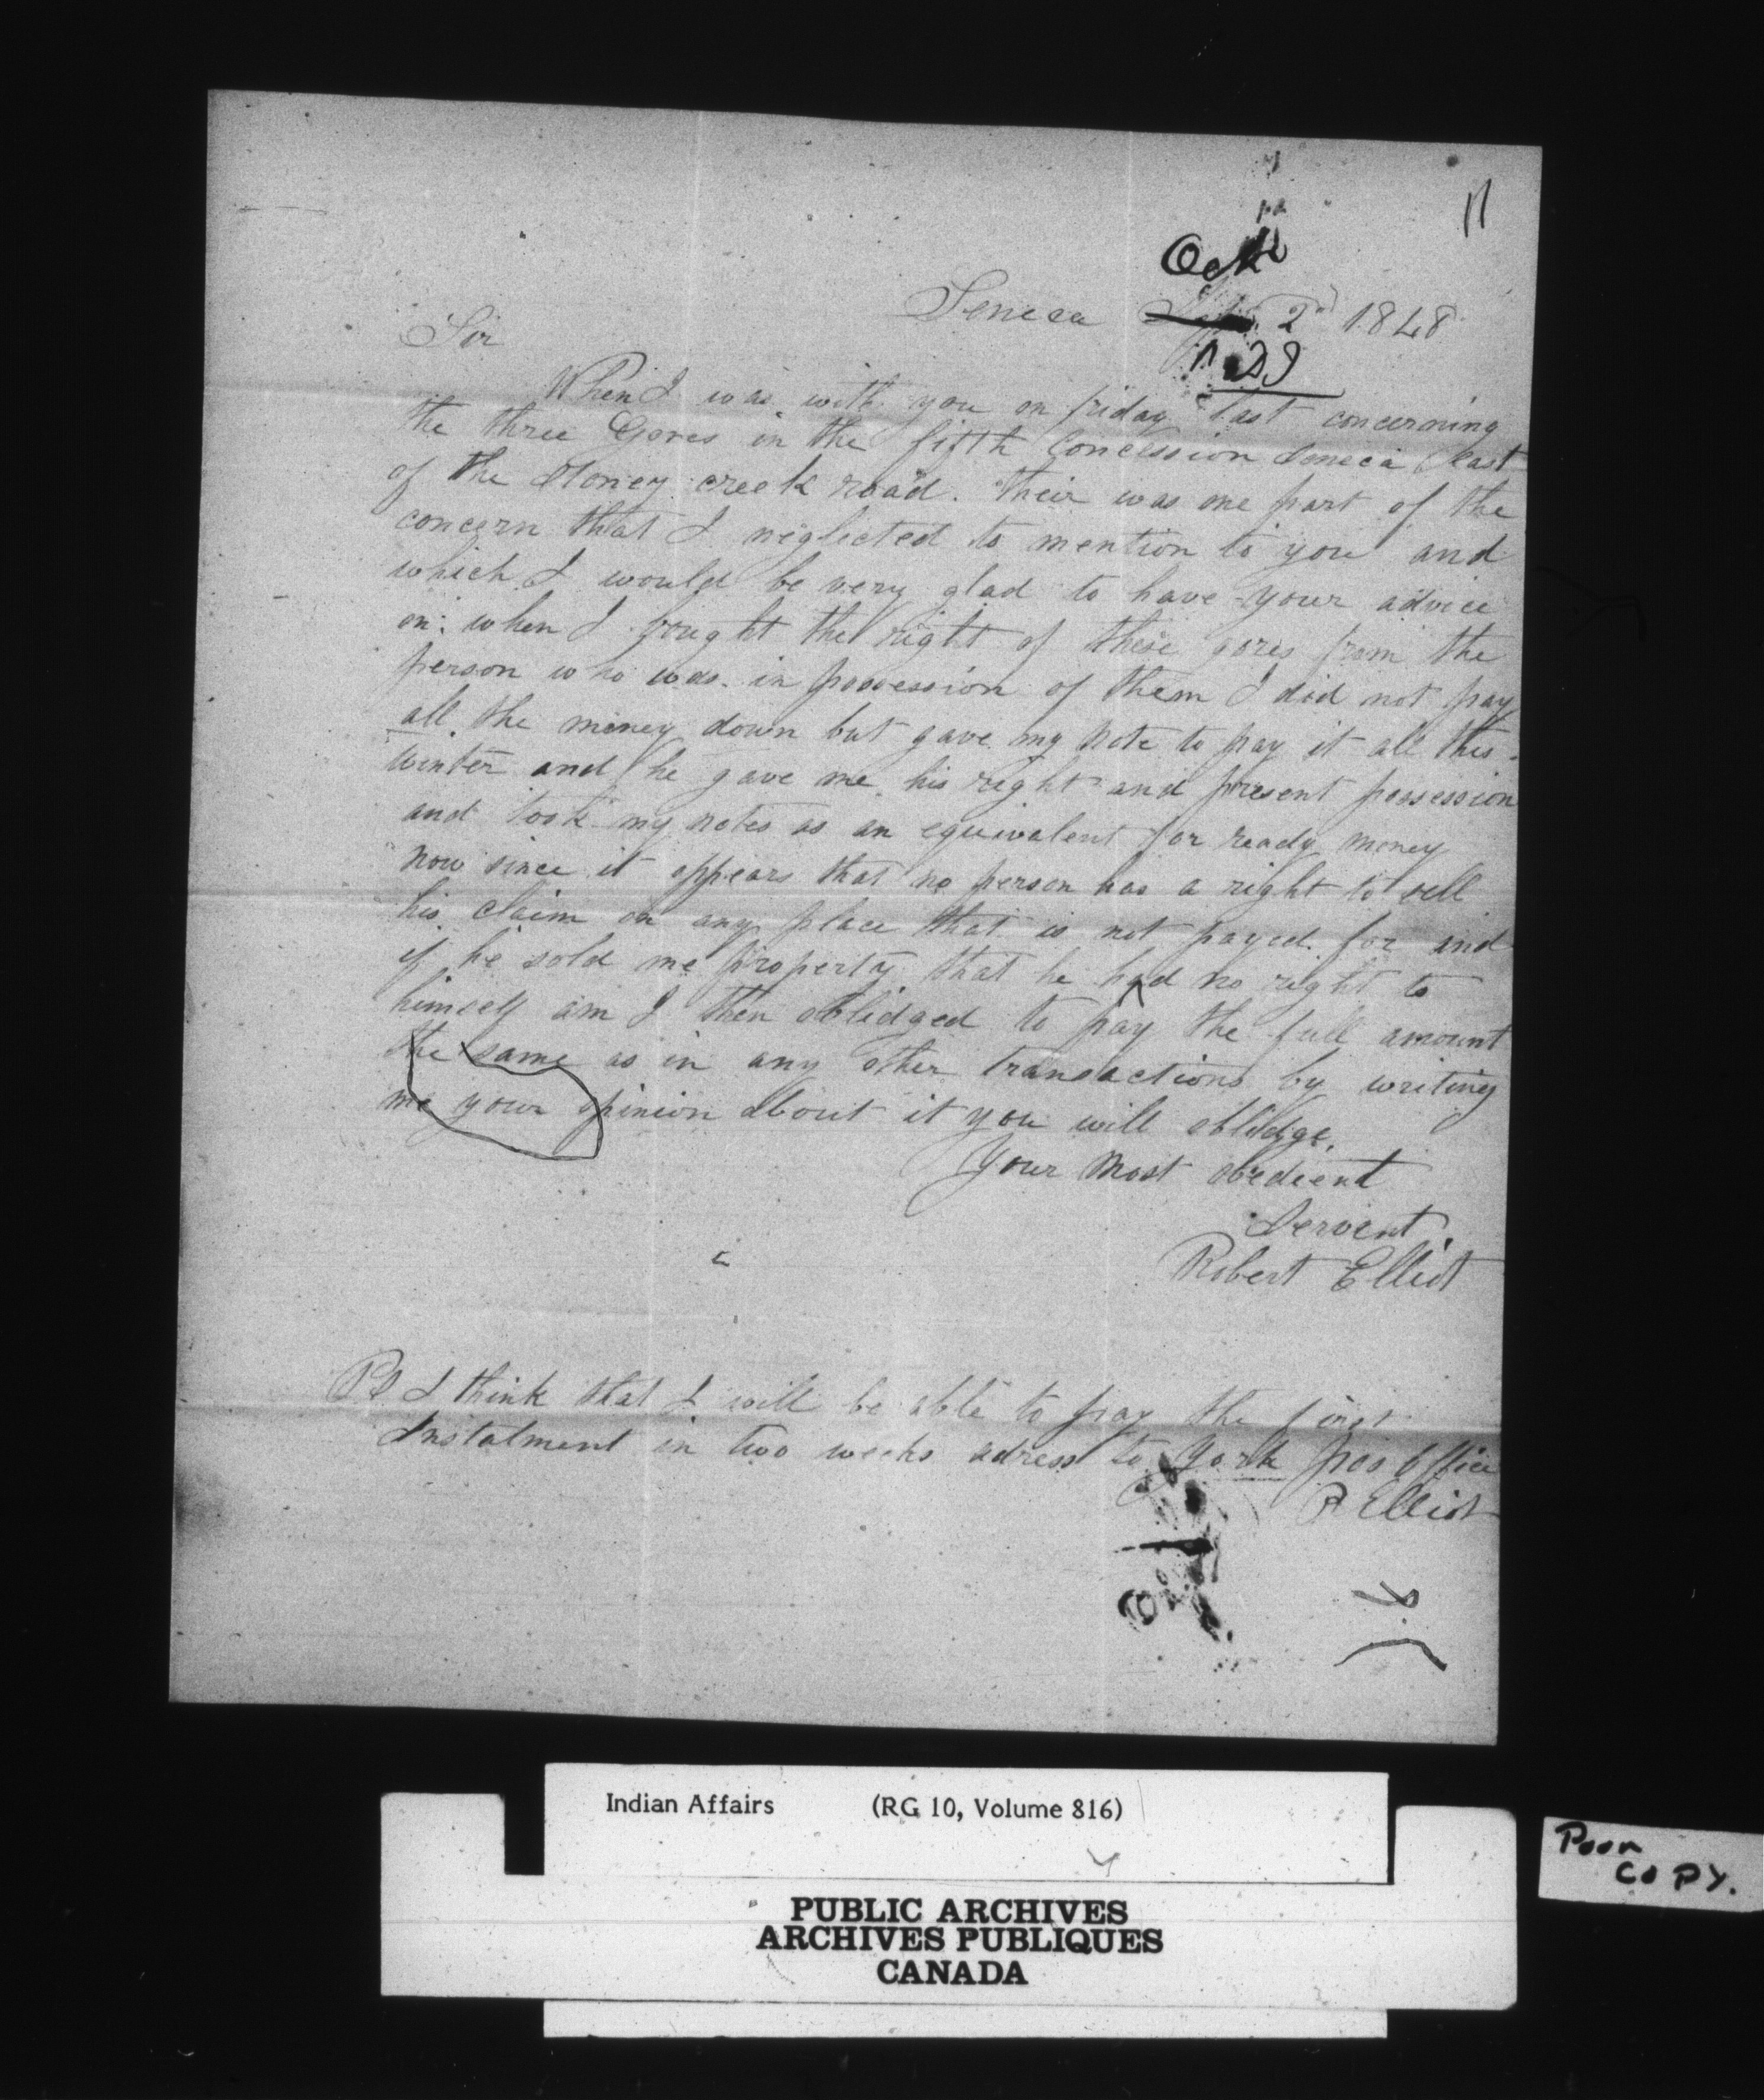 11
Octr
Seneca 2d 1848
n 29
Sir
When I was with you on friday last concerning
the three Gores in the fifth Concession Seneca East
of the Stoney creek road. their was one part of the
concern that I neglected to mention to you and
which I would be very glad to have your advice
on. when I bought the right of these gores from the
person who was in possession of them I did not pay
all the money down but gave my note to pay it all this
winter and he gave me his right and present possession
and took my notes as an equivalent for ready money
now since it appears that no person has a right to sell
his claim on any place that is not payed for and
if he sold me property that he had no right to
himself am I then oblidged to pay the full amount
the same as in any other transactions by writing
me your opinion about it you will oblidge.
Your most obedient
Servent.
Robert Elliot
PS I think that I will be able to pay the first
Instalment in two weeks adress to York pos office
R Elliot
Indian Affairs (RG 10, Volume 816)
PUBLIC ARCHIVES
ARCHIVES PUBLIQUES
CANADA
Poor
COPY.